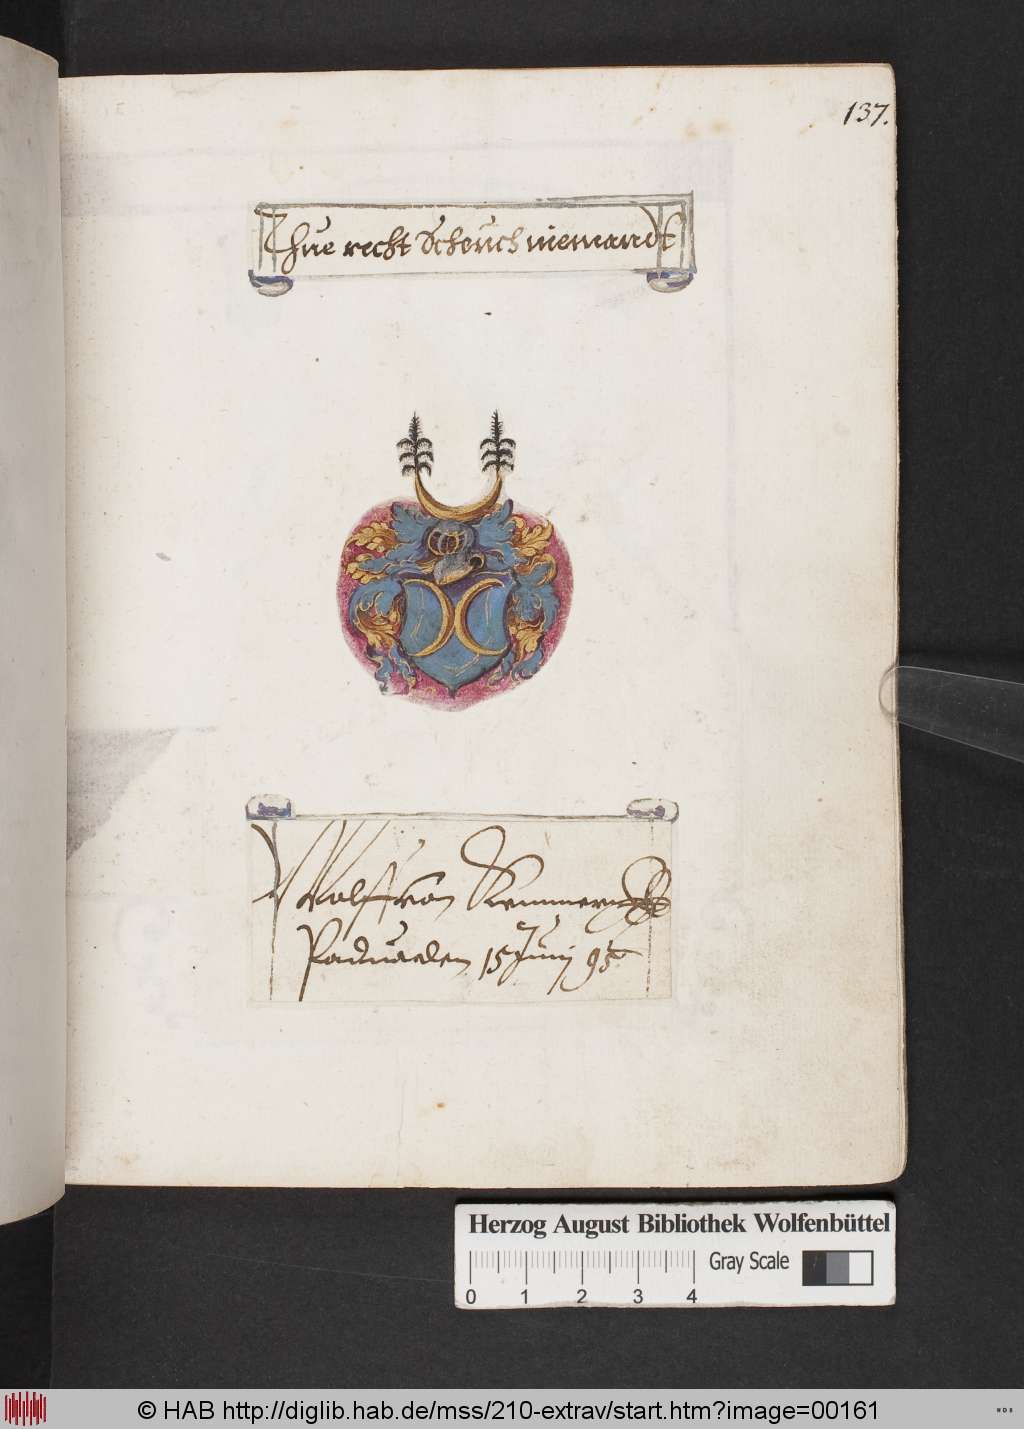 137.
Thue recht Scheuch niemandt
Wolff von
Padua den 15 Junij 95
Herzog August Bibliothek Wolfenbüttel
Gray Scale
0 1 2 3 4
© HAB http://diglib.hab.de/mss/210-extrav/start.htm?image=00161